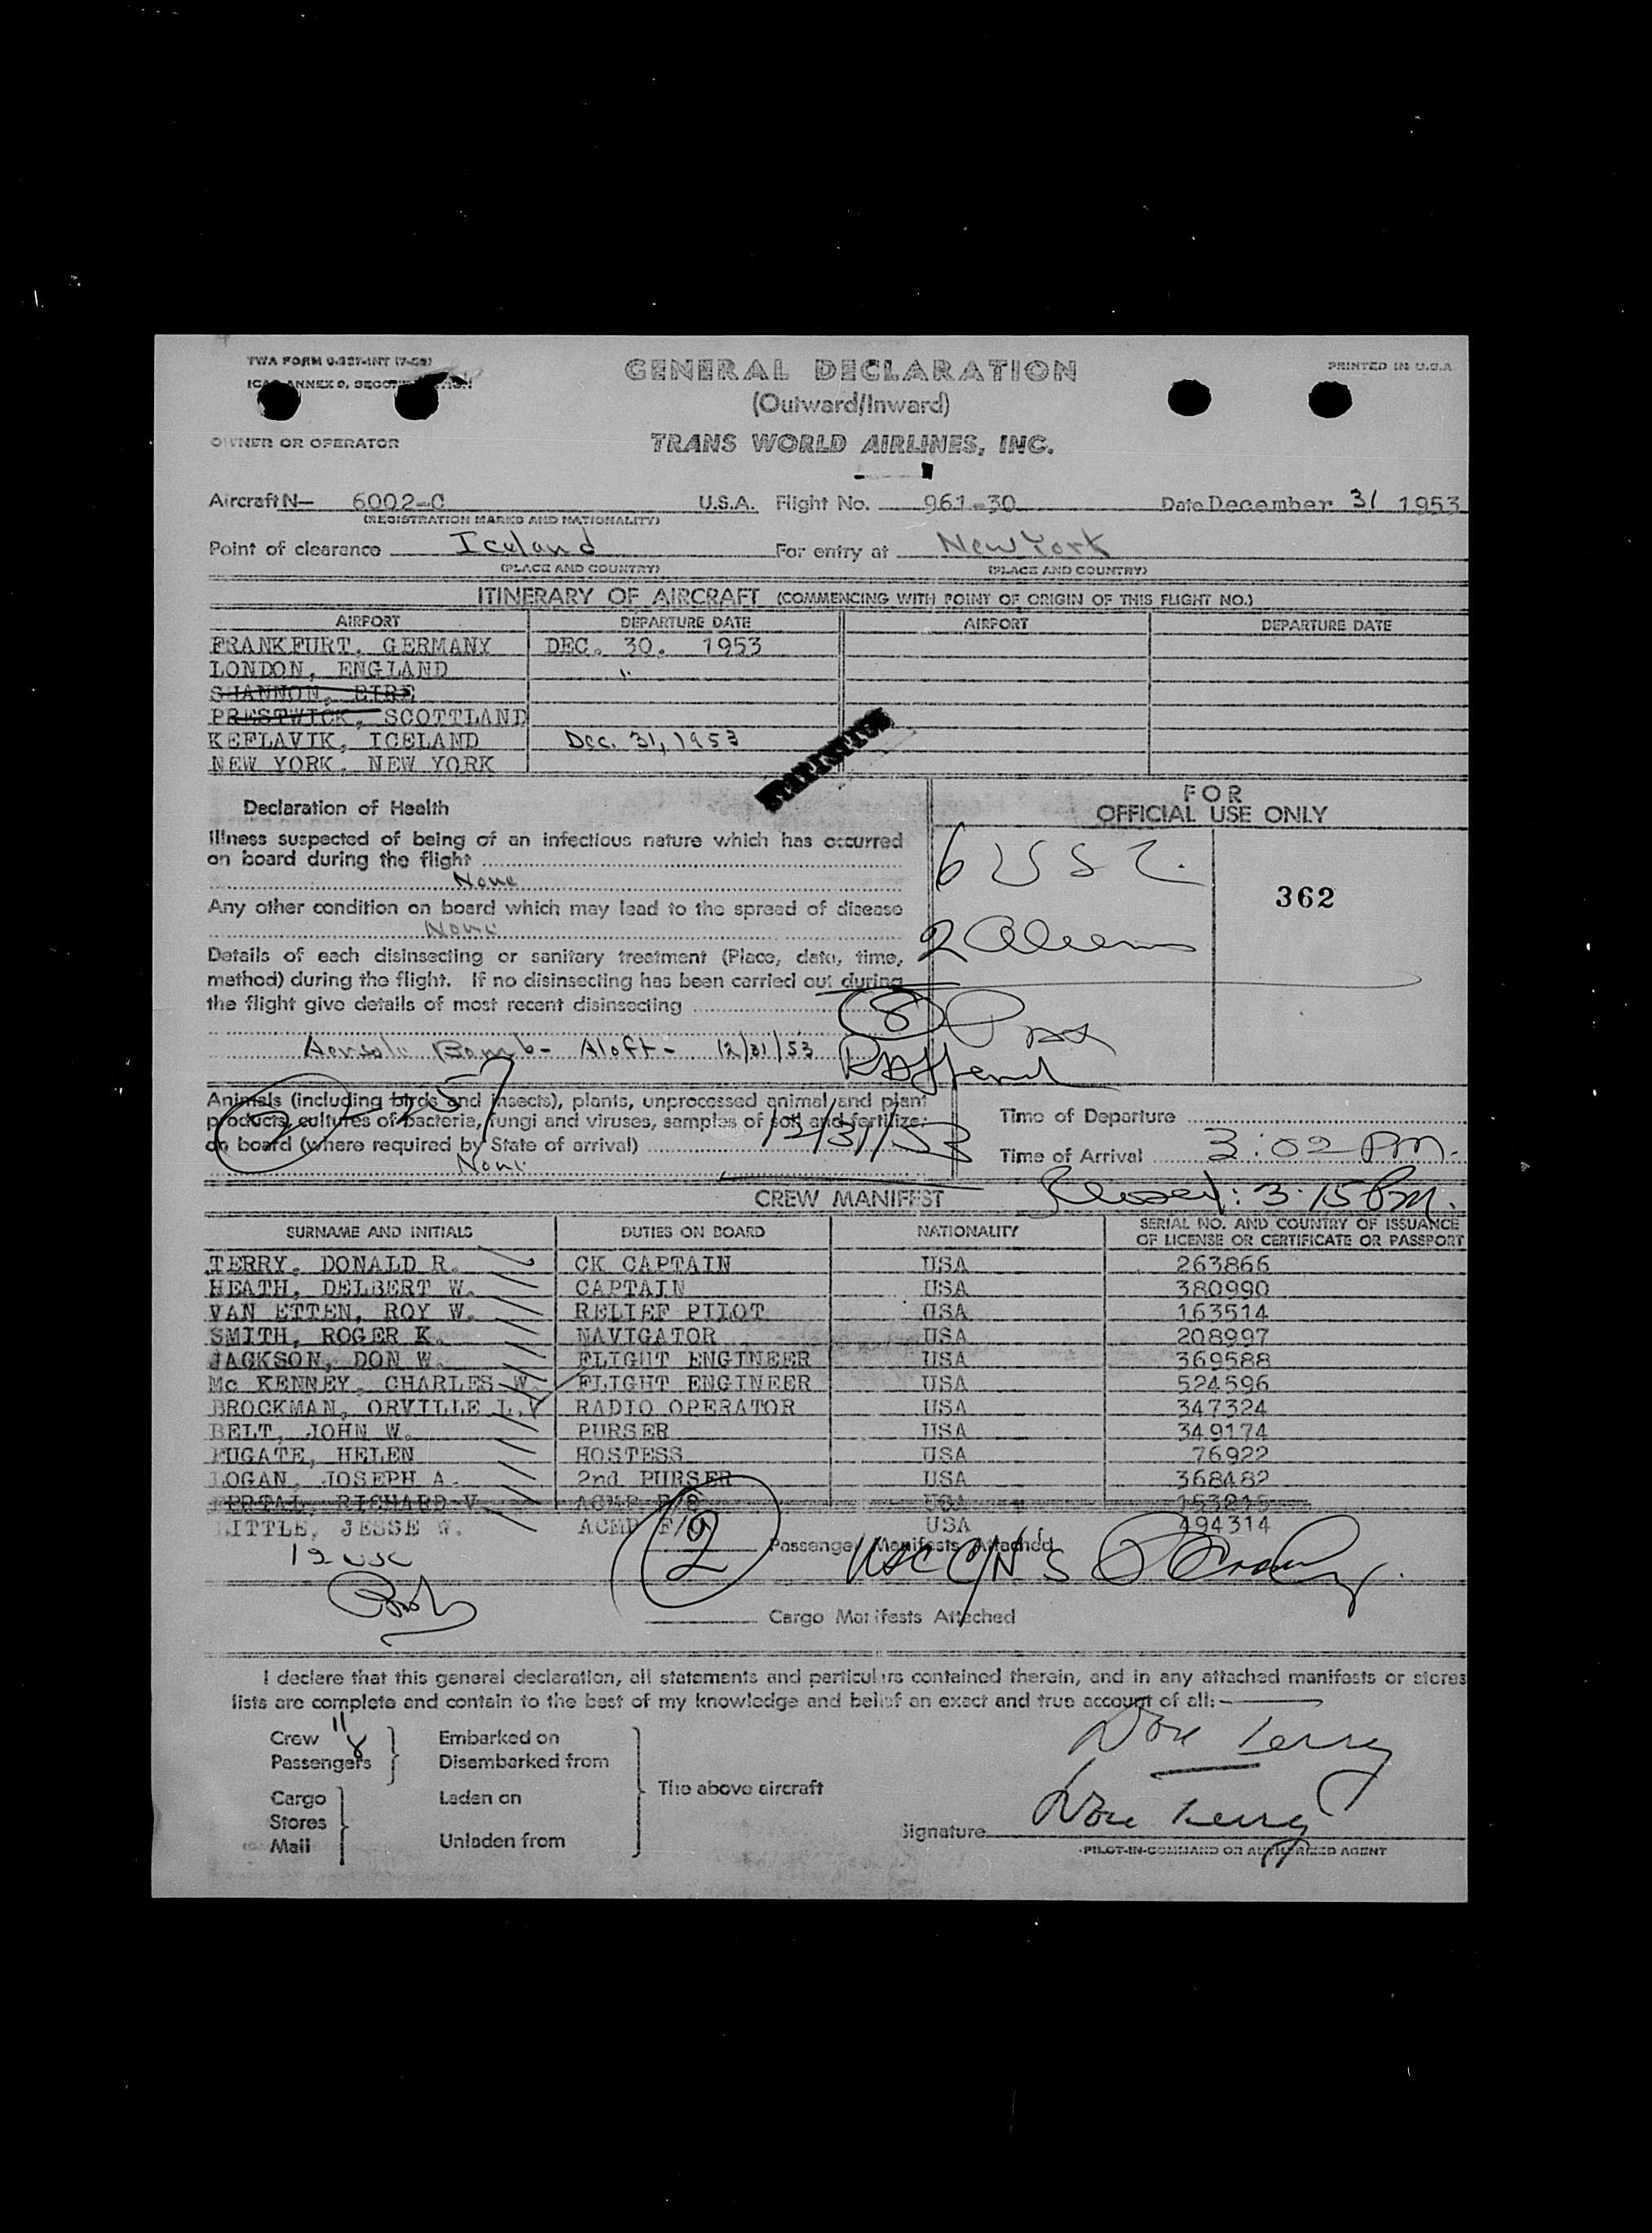 TWA FORM
PRINTED IN U.S.A.
GENERAL DECLARATION
(Outward/Inward)
OWNER OR OPERATOR
TRANS WORLD AIRLINES, INC.
Aircraft N— 6002-C U.S.A. Flight No. 961-30 Date December 31 1953
(REGISTRATION MARKS AND NATIONALITY)
Point of clearance Iceland For entry at New York
(PLACE AND COUNTRY) (PLACE AND COUNTRY)
ITINERARY OF AIRCRAFT (COMMENCING WITH POINT OF ORIGIN OF THIS FLIGHT NO.)
AIRPORT DEPARTURE DATE AIRPORT DEPARTURE DATE
FRANKFURT, GERMANY DEC. 30. 1953
LONDON, ENGLAND "
SHANNON, EIRE
PRESTWICK, SCOTTLAND
KEFLAVIK, ICELAND Dec. 31, 1953
NEW YORK, NEW YORK
STATISTICS
Declaration of Health
Illness suspected of being of an infectious nature which has occurred
on board during the flight
None
Any other condition on board which may lead to the spread of disease
None
Details of each disinsecting or sanitary treatment (Place, date, time,
method) during the flight. If no disinsecting has been carried out during
the flight give details of most recent disinsecting
Aersolv Bomb - Aloft - 12/31/53
FOR
OFFICIAL USE ONLY
6 USC.
362
2 Aliens
8 Pax
Animals (including birds and insects), plants, unprocessed animal and plant
products, cultures of bacteria, fungi and viruses, samples of soil and fertilizer
on board (where required by State of arrival)
None
12/31/53
Time of Departure
Time of Arrival 3:02 PM.
3:15 Pm.
CREW MANIFEST
SURNAME AND INITIALS DUTIES ON BOARD NATIONALITY SERIAL NO. AND COUNTRY OF ISSUANCE
OF LICENSE OR CERTIFICATE OR PASSPORT
TERRY, DONALD R. CK CAPTAIN USA 263866
HEATH, DELBERT W. CAPTAIN USA 380990
VAN ETTEN, ROY W. RELIEF PILOT USA 163514
SMITH, ROGER K. NAVIGATOR USA 208997
JACKSON, DON W. FLIGHT ENGINEER USA 369588
Mc KENNEY, CHARLES W. FLIGHT ENGINEER USA 524596
BROCKMAN, ORVILLE L. RADIO OPERATOR USA 347324
BELT, JOHN W. PURSER USA 349174
FUGATE, HELEN HOSTESS USA 76922
LOGAN, JOSEPH A. 2nd PURSER USA 368482
RICHARD V. USA
LITTLE, JESSE W. ACMP F/O USA 494314
12 USC
2 Passenger Manifests Attached
Cargo Manifests Attached
I declare that this general declaration, all statements and particulars contained therein, and in any attached manifests or stores
lists are complete and contain to the best of my knowledge and belief an exact and true account of all:—
Crew 11 Embarked on
Passengers 8 Disembarked from
The above aircraft
Cargo Laden on
Stores
Mail Unladen from
Don Terry
Signature Don Terry
PILOT-IN-COMMAND OR AUTHORIZED AGENT